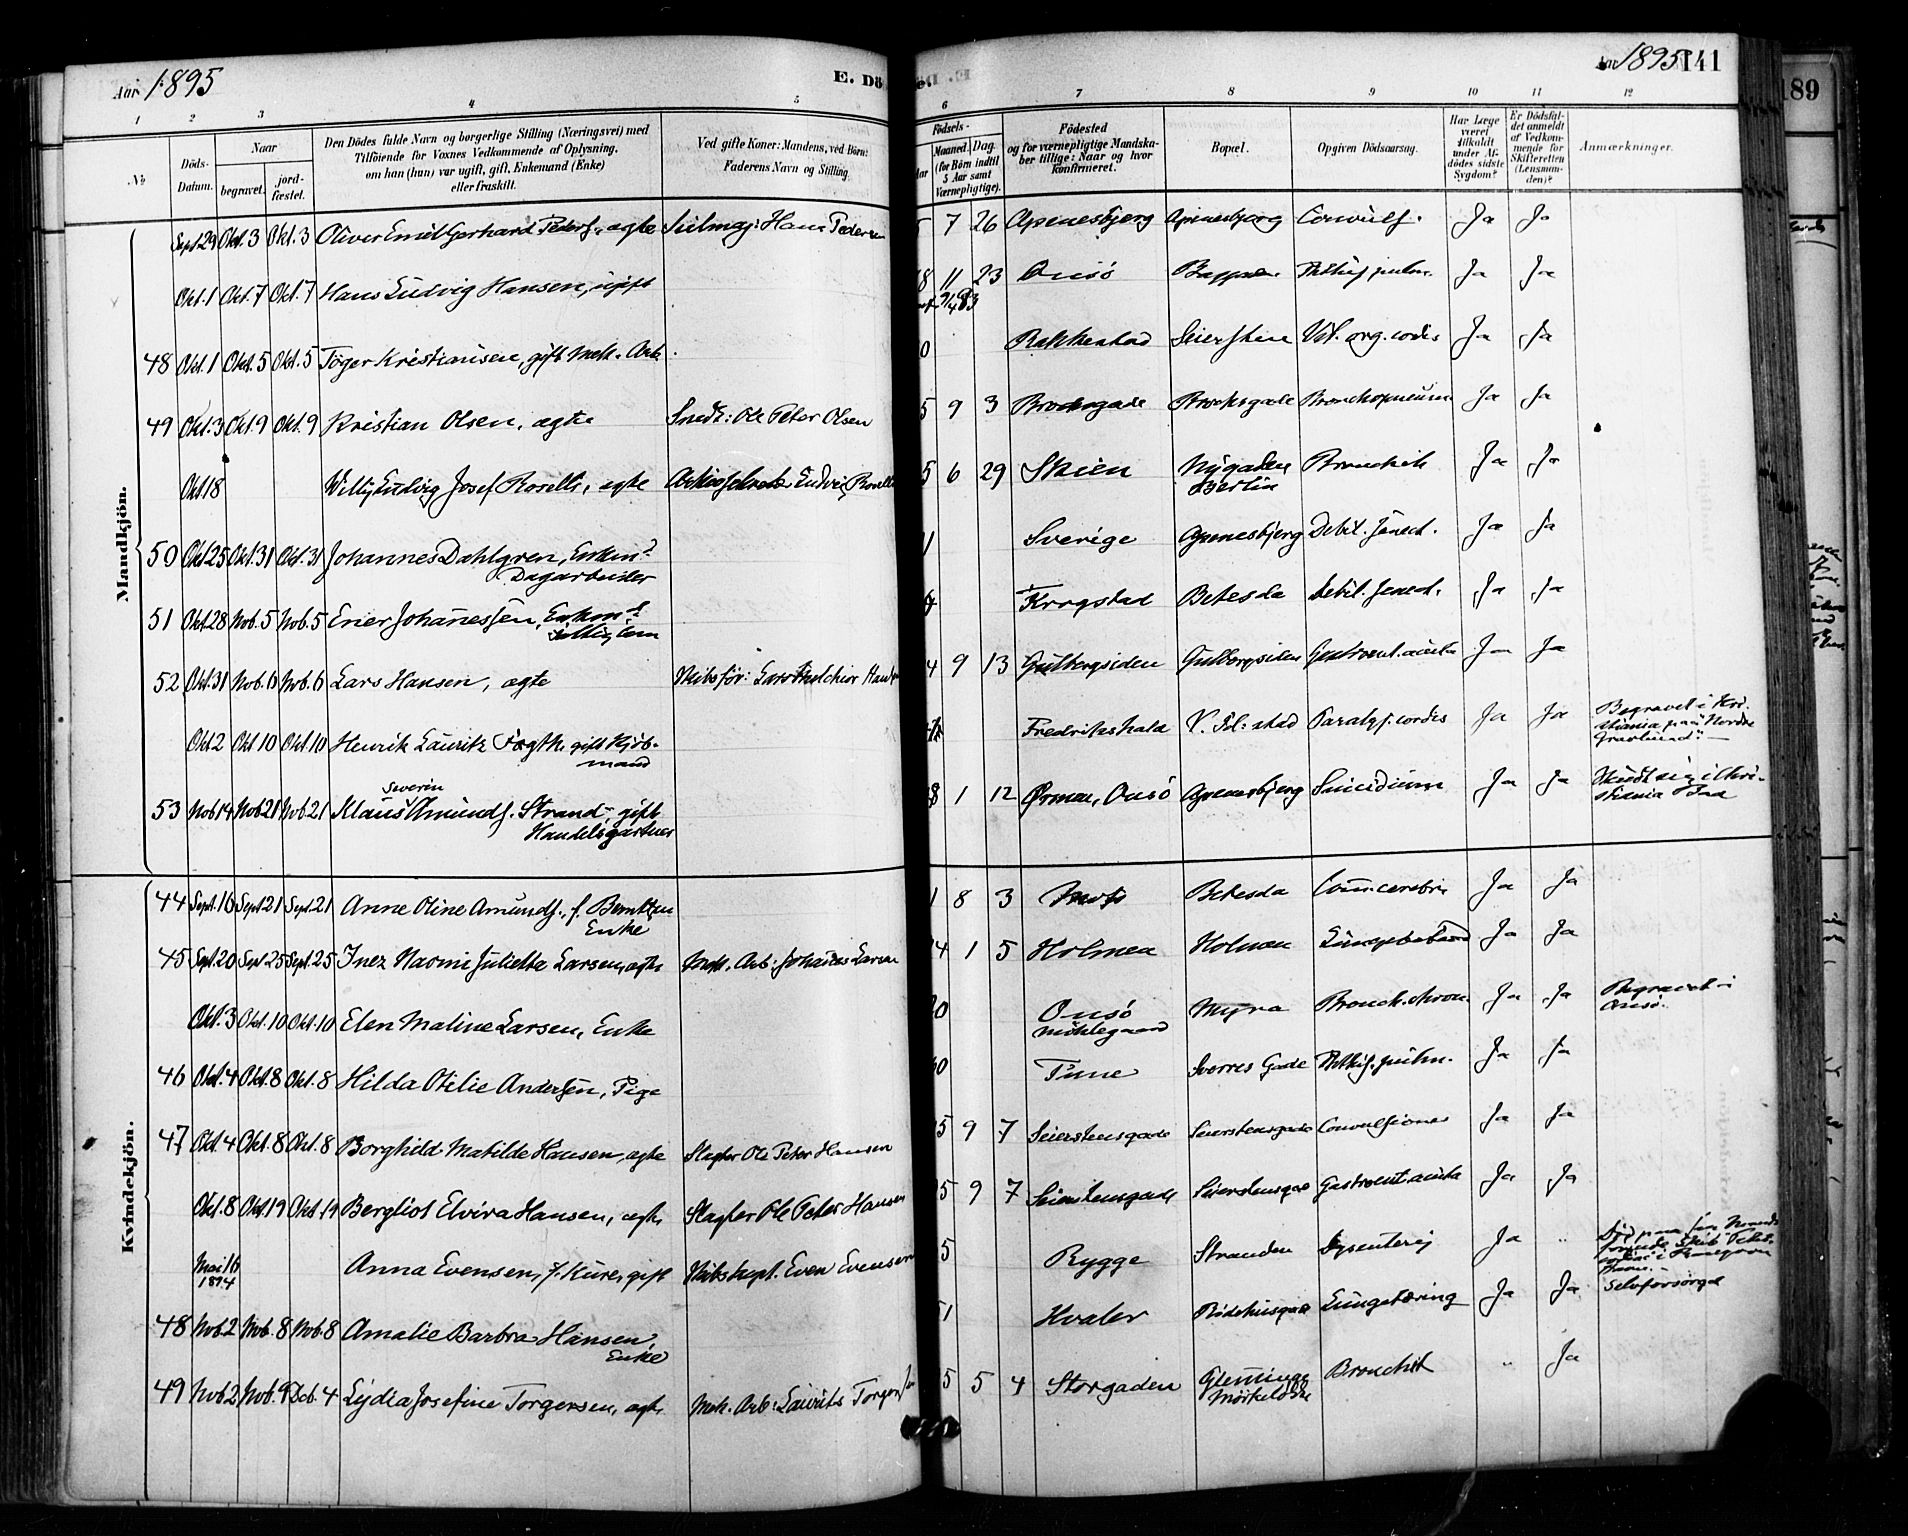 Aar 1895
E. Dö
e.
Aar 1895
141
189
1 2 3 4 5 6 7 8 9 10 11 12
No
Döds-Datum.
Naar
begravet.
jord-fæstet.
Den Dödes fulde Navn og borgerlige Stilling (Næringsvei) med
Tilföiende for Voxnes Vedkommende af Oplysning,
om han (hun) var ugift, gift, Enkemand (Enke)
eller fraskilt.
Ved gifte Koner: Mandens, ved Börn:
Faderens Navn og Stilling.
Födsels-
Aar
Maaned. Dag.
(for Börn indtil
5 Aar samt
Værnepligtige).
Födested
og for værnepligtige Mandska-
ber tillige: Naar og hvor
konfirmeret.
Bopæl.
Opgiven Dödsaarsag.
Har Læge
været
tilkaldt
under Af-
dödes sidste
Sygdom?
Er Dödsfal-
det anmeldt
af Vedkom-
mende for
Skifteretten
(Lensman-
den)?
Anmærkninger.
Mandkjön.
Sept 29 Okt. 3 Okt. 3 Oliver Emil Gerhard Peders., ægte Hans Pedersen 5 7 26 Apenesbjerg Apenesbjerg Convuls. Ja Ja
Okt. 1 Okt. 7 Okt. 7 Hans Ludvig Hansen, ugift 8 11 23 Onsö Phthis. pulm. Ja Ja
48 Okt. 1 Okt. 5 Okt. 5 Töger Kristiansen, gift Mek. Arb. 0 Rakkestad Seiersten Vit. org. cordis Ja Ja
49 Okt. 3 Okt. 9 Okt. 9 Kristian Olsen, ægte Snedk: Ole Peter Olsen 5 9 3 Brochsgade Brochsgade Bronchopneum Ja Ja
Okt 18 Willy Ludvig Josef Roselli, ægte Ludvig Roselli 5 6 29 Skien Nygaden Bronchit Ja Ja
Berlin
50 Okt. 25 Okt. 31 Okt. 31 Johannes Dahlgren, Enkem. 1 Sverige Apenesbjerg Debil. senect. Ja Ja
Dagarbeider
51 Okt. 28 Nov. 5 Nov. 5 Erier Johanessen, Enkem. 4 Krogstad Betesda Debil. senect. Ja Ja
52 Okt. 31 Nov. 6 Nov. 6 Lars Hansen, ægte Skibsför: Lars Melchior Hansen 4 9 13 Gulbergsiden Gulbergsiden Gastroent. acuta Ja Ja
Okt. 2 Okt. 10 Okt. 10 Henrik Lauritz Fogth, gift Kjöb-
mand
Fredrikshald V. Fr: stad Paralys. cordis Ja Ja Begravet i Kri-
stiania paa "Nordre
Gravlund".
53 Nov 14 Nov 21 Nov. 21 Klaus Severin Amunds. Strand, gift 8 1 12 Örmen, Onsö Apenesbjerg Suicidium Ja Ja Skudt sig i Chri-
stiania Bad
Handelsgartner
Kvindekjön.
44 Sept. 16 Sept 21 Sept. 21 Anne Oline Amunds., f. Berntsen 1 8 3 Moss Betesda Comm. cerebri Ja Ja
Enke
45 Sept. 20 Sept 25 Sept. 25 Inez Naomi Julietta Larsen, ægte Mek. Arb: Johannes Larsen 4 1 5 Holmen Holmen Lungebetænd Ja Ja
Okt. 3 Okt. 10 Okt. 10 Elen Maline Larsen, Enke 0 Onsö Myra Bronch. chron. Ja Ja Begravet i
Onsö.
Möklegaard
46 Okt. 4 Okt. 8 Okt. 8 Hilda Otilie Andersen, Pige 0 Tune Sverres Gade Phthis. pulm. Ja Ja
47 Okt. 4 Okt. 8 Okt. 8 Borghild Matilde Hansen, ægte Slagter Ole Peter Hansen 5 9 7 Seierstensgade Seierstensgade Convulsioner Ja Ja
Okt. 8 Okt. 19 Okt. 19 Bergliot Elvira Hansen, ægte Slagter Ole Peter Hansen 5 9 7 Seierstensgade Seierstensgade Gastroent acuta Ja Ja
Mai 16 Anna Evensen, f. Kure, gift Skibskapt. Even Evensen 5 Rygge Stranden Dysenteri Ja "
1894
48 Nov. 2 Nov. 8 Nov. 8 Amalie Barbra Hansen, 1 Hvaler Lungetæring Ja Ja Selvforsörget
Enke
49 Nov. 2 Nov. 9 Deb. 4 Lydia Josefine Torgersen, ægte Mek. Arb: Laurits Torgersen 5 5 4 Storgaden Glemminge Bronchit " Ja